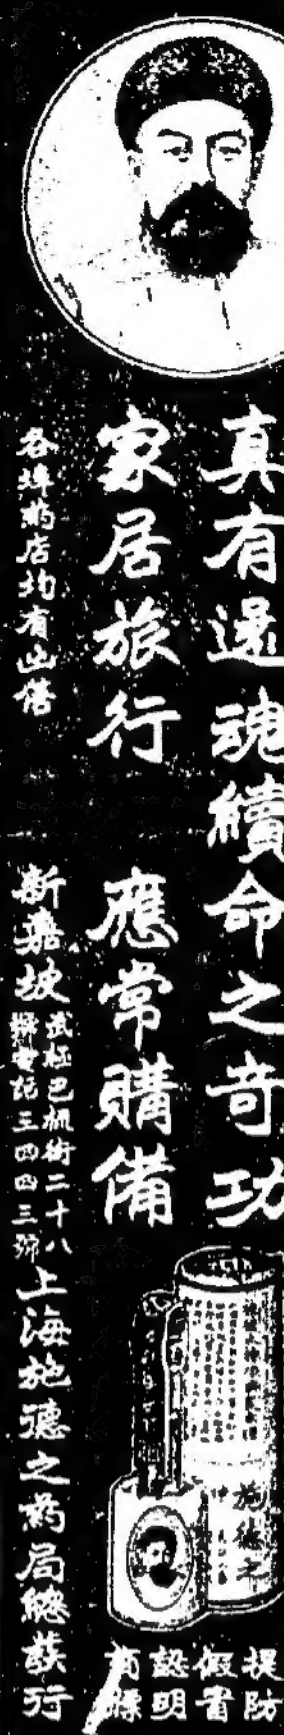 真有還魂續命之奇功
家居旅行　應常購備
各埠葯店均有出售
新嘉坡
武極巴梹街二十八
號電話三四四三號
上海施德之葯局總發行
施德之
提防
假冒
認明
商標